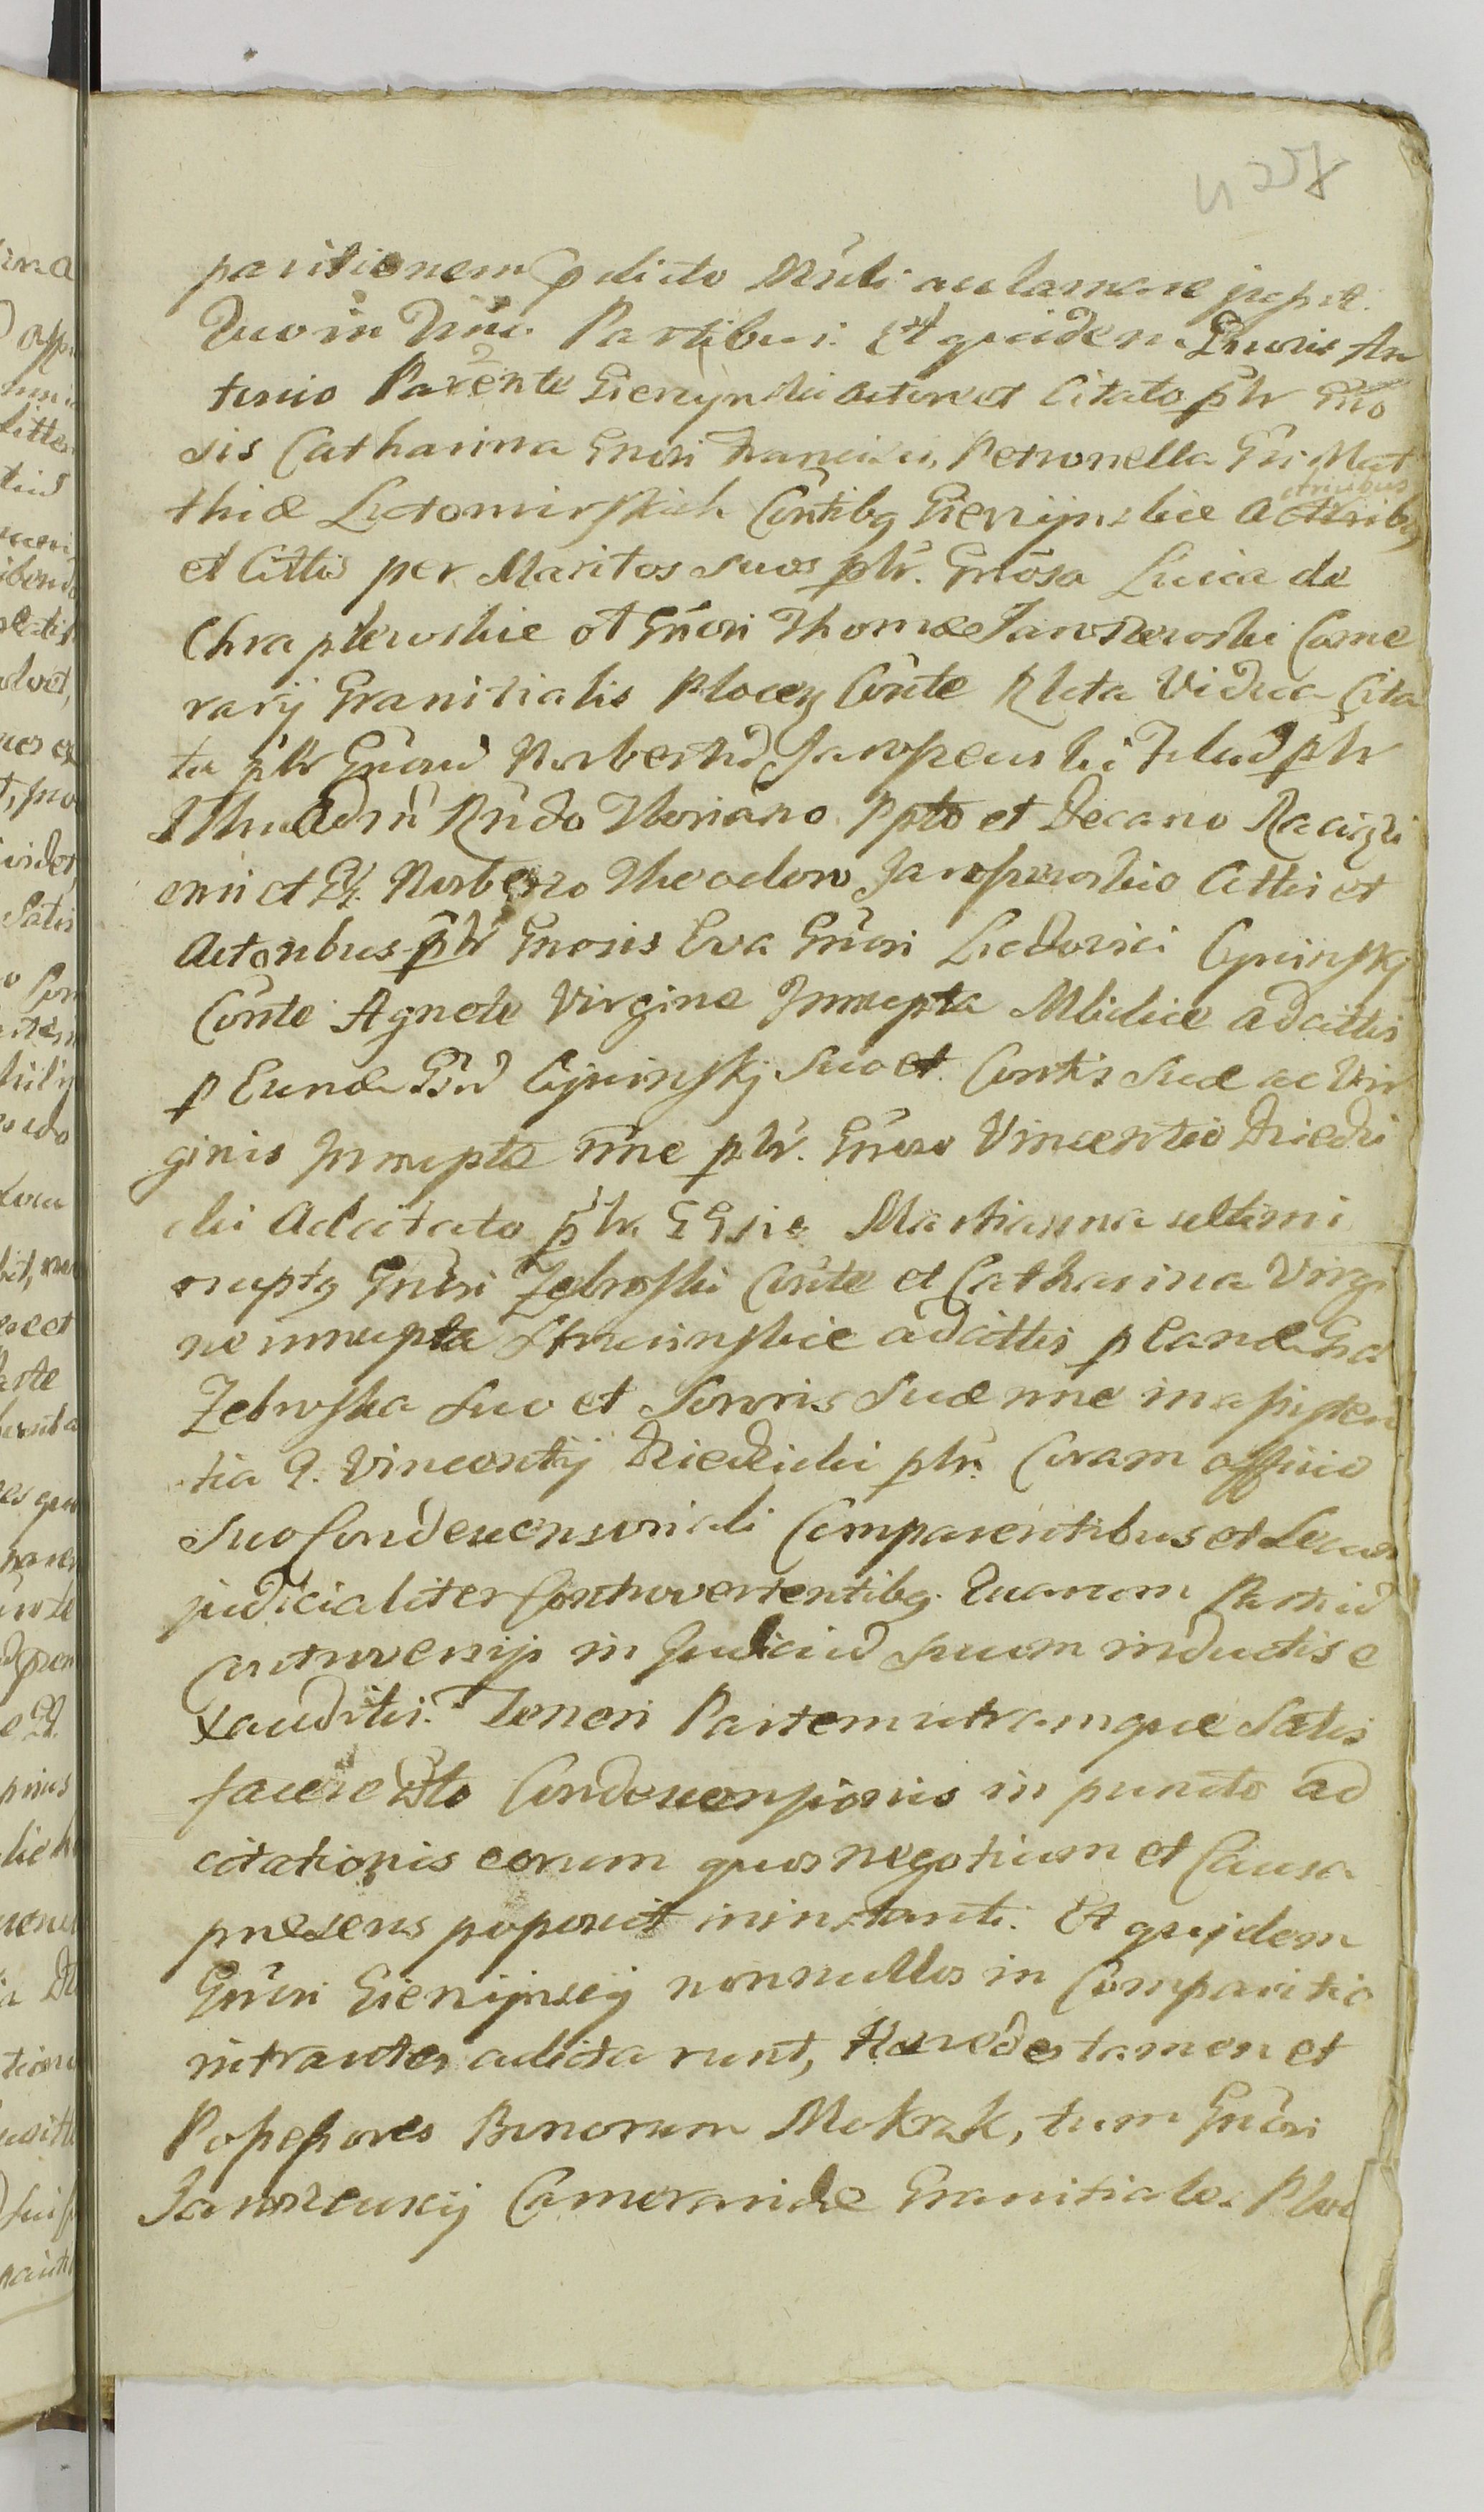 258
paritionem p dicto Mnli acclamare jussit.
Quo in Tño Partibus. Et quidem Gnoris An
tonio Parente Gienzynski Actore et Citato plr Gño
sis Catharina Gnosi Francisci, Petronella Gñi Mat
thiæ Lutomirskich Contibg Gienzynskie Actribg
etricibus
et Cittis per Maritos suos plr. Gnosa Lucia de
Chraplewskie et Gnosi Thomæ Janoszewski Came
rarij Granicialis Plocen Conte Rlcta Vidua Cita
ta plr Gnosu Norbertu Janoszewski Filiu plr
Illtri Adm Rndo Floriano Ppto et Decano Raciązi
ensi et G. Norberto Theodoro Janoszewskie Cittis et
Actoribus plr Gnosis Eva Gnosi Ludovici Cywinskj
Conte Agnete Virgine Innupta Mlickie adcittis
p Eunde Gsu Cywinskj Suo et Contis Suæ ac Vir
ginis Innuptæ nñe plr. Gnoso Vincentio Dziedzi
cki Adcitato plr. GGsis Martianna ultimi
nuptg Gnosi Zebrosski Conte et Catharina Virgi
ne innupta adcittis p Eande Gsa
Zebrosska Suo et Sororis Suæ nñe in assisten
tia G. Vincentij Dziedzicki plr. Coram officio
Suo Condescensoriali Comparentibus et Secum
judicialiter Controvertentibg. Quarum Partiu
Controversijs in Judiciu suum inductis e
xauditis. Teneri Partem utramque Satis
facere Dto Condescensionis in puncto ad
citationis eorum quos negotium et Causa
præsens poposcit ininstanti. Et quidem
Gnosi Gienzijnscij nonnullos in Comparitio
intrantes adcitarunt, Hæredes tamen et
Possessores Bonorum Mokrzk, tum Gnosi
Janoszewscij Cameraridæ Granitiales Ploc